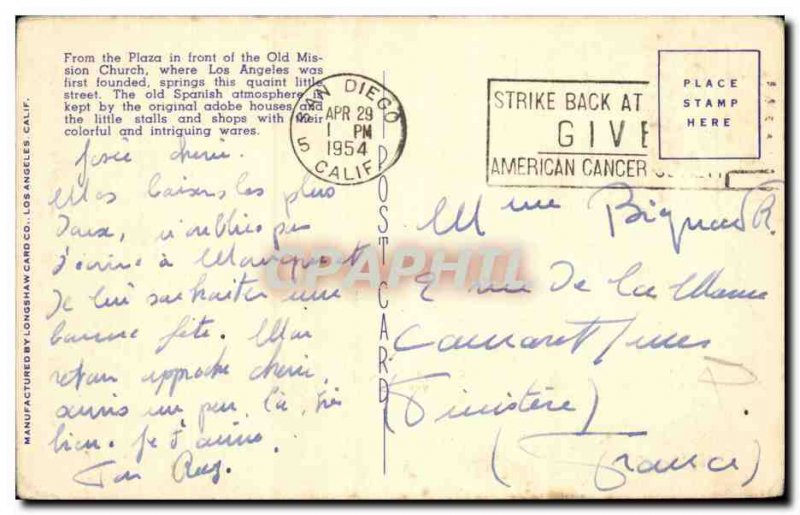 From the Plaza in front of the Old Mis-
sion Church, where Los Angeles was
first founded, springs this quaint little
street. The old Spanish atmosphere is
kept by the original adobe houses and
the little stalls and shops with their
colorful and intriguing wares.
SAN DIEGO
APR 29
1 PM
1954
5
CALIF.
STRIKE BACK AT
GIVE
AMERICAN CANCER
PLACE
STAMP
HERE
MANUFACTURED BY LONGSHAW CARD CO., LOS ANGELES, CALIF.
POST CARD
chérie.
Mes baisers les plus
doux, n'oublie pas
à
Je lui souhaiter une
bonne fête. Mon
retour approche chérie
un peu là, très
bien. Je t'aime
Ton
CPAPHIL
Mme
2 rue de la
Camaret / mer
(Finistère)
(France)